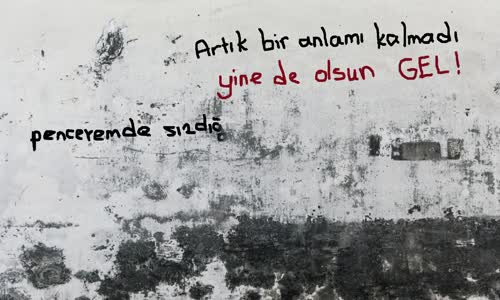 Artık bir anlamı kalmadı
yine de olsun GEL!
penceremde sızdığ